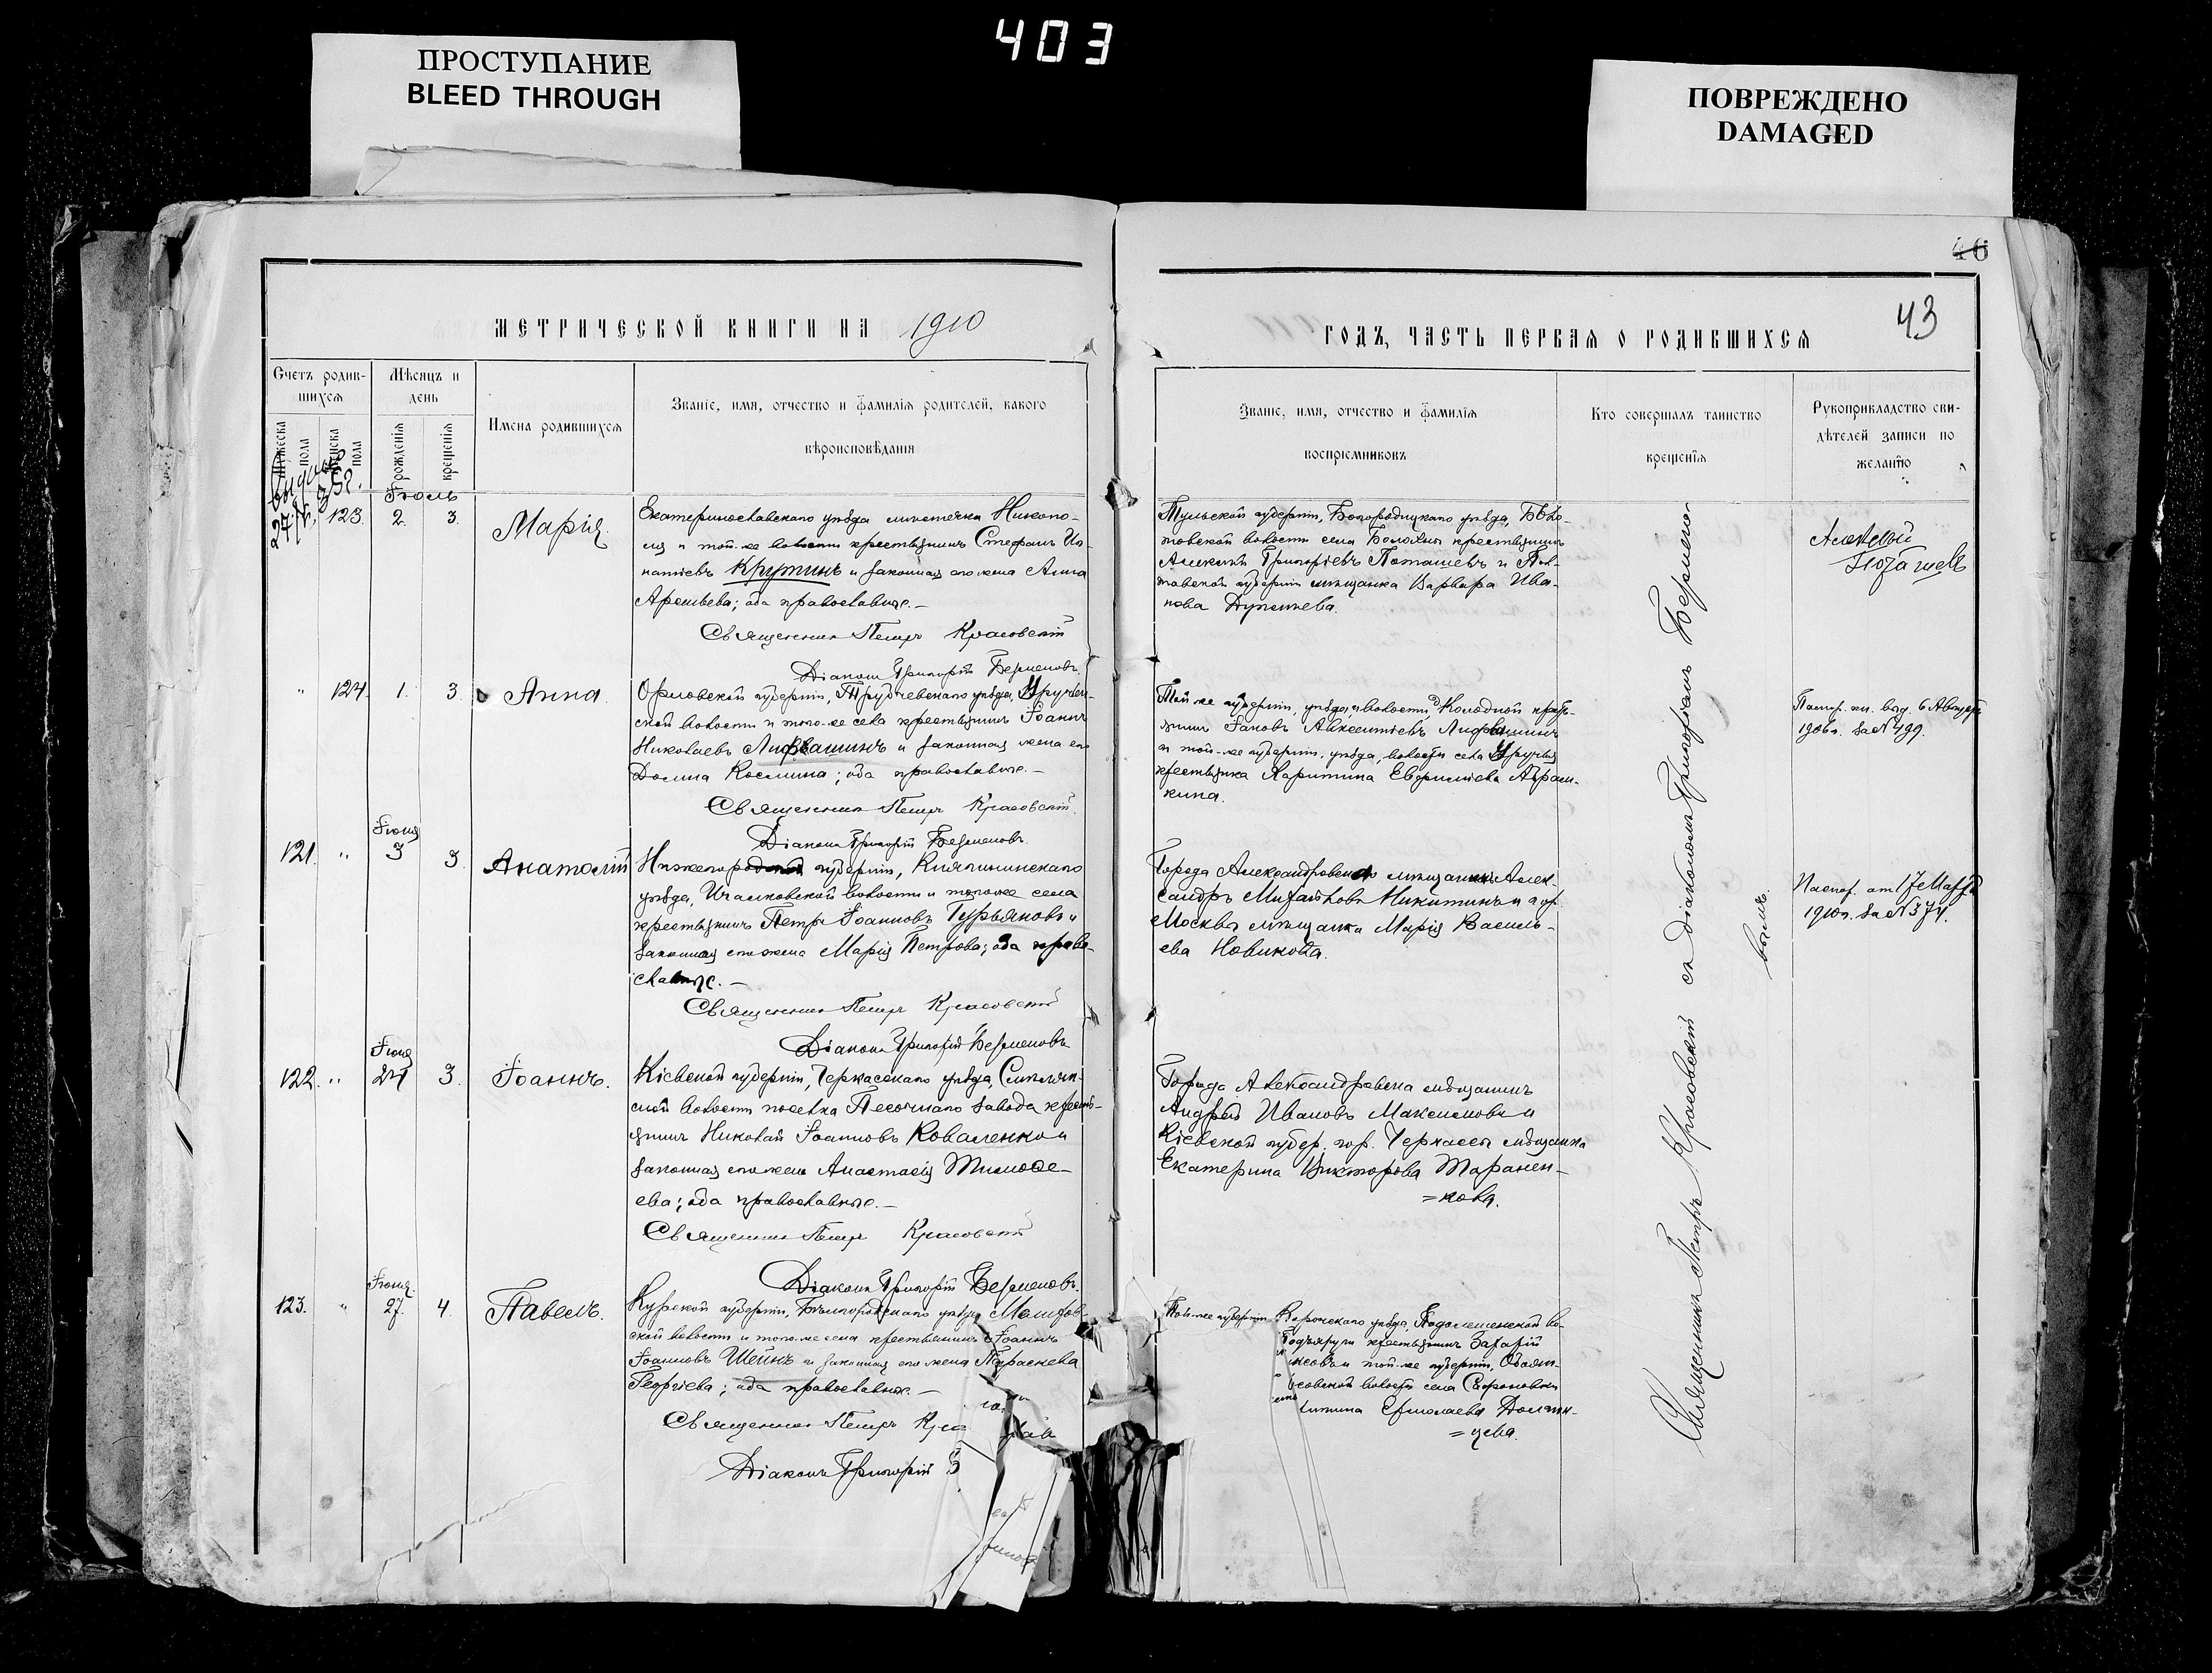 403
ПРОСТУПАНИЕ
BLEED THROUGH
ПОВРЕЖДЕНО
DAMAGED
46
43
МЕТРИЧЕСКОЙ КНИГИ НА 1910
ГОДЪ, ЧАСТЬ ПЕРВАЯ О РОДИВШИХСЯ
Счетъ родив-
шихся
Мужеска
пола
Женска
пола
Мѣсяцъ и
день
рожденія
крещенія
Имена родившихся
Званіе, имя, отчество и фамилія родителей, какого
вѣроисповѣданія
Званіе, имя, отчество и фамилія
воспріемниковъ
Кто совершалъ таинство
крещенія
Рукоприкладство сви-
дѣтелей записи по
желанію
Іюль
123. 2. 3. Марія.
Екатеринославскаго уѣзда мѣстечка Никопо-
ля и той-же волости крестьянинъ Стефанъ Иг-
натіевъ Крутинъ и законная его жена Анна
Арсеньева; оба православные.—
Священникъ Петръ Красовскій
Діаконъ Григорій Безменовъ
Тульской губерніи, Богородицкаго уѣзда,
товской волости села крестьянинъ
Алексѣй Григоріевъ Поташевъ и Пол-
тавской губерніи мѣщанка Варвара Ива-
нова
Алексѣй
Поташевъ
" 124. 1. 3. Анна.
Орловской губерніи, Трубчевскаго уѣзда, Уручьен-
ской волости и того-же села крестьянинъ Іоаннъ
Николаевъ и законная жена его
Домна Космина; оба православные.—
Священникъ Петръ Красовскій
Діаконъ Григорій Безменовъ.
Той-же губерніи, уѣзда, и волости, Колодной кресть-
янинъ Іаковъ Авксентіевъ
и той-же губерніи, уѣзда, волости села Уручья
крестьянка Харитина Евфиміева Абрам-
кина.
Паспор. кн. выд. 6 Августа
1906 г. за № 499.
Іюня
121. " 3 3. Анатолій
Нижегородской губерніи, Княгининскаго
уѣзда, Ичалковской волости и того-же села
крестьянинъ Петръ Іоанновъ Гурьяновъ и
законная его жена Марія Петрова; оба право-
славные.—
Священникъ Петръ Красовскій
Діаконъ Григорій Безменовъ
Города Александровска мѣщанинъ Алек-
сандръ Михайловъ Никитинъ и гор.
Москвы мѣщанка Марія Василь-
ева Новикова.
Паспор. от 17 Марта
1910 г. за № 374.
Іюня
122. " 24 3. Іоаннъ.
Кіевской губерніи, Черкасскаго уѣзда,
ской волости поселка Песочнаго Завода кресть-
янинъ Николай Іоанновъ Коваленко и
законная его жена Анастасія Тимоѳе-
ева; оба православные.—
Священникъ Петръ Красовскій
Діаконъ Григорій Безменовъ.
Города Александровска мѣщанинъ
Андрей Ивановъ Максимовъ и
Кіевской губер. гор. Черкассы мѣщанка
Екатерина Викторова Таранен-
=кова.
Іюня.
123. " 27. 4. Павелъ.
Курской губерніи, Бѣлгородскаго уѣзда,
ской волости и того-же села крестьянинъ Іоаннъ
Іоанновъ Шеинъ и законная его жена Параскева
Георгіева; оба православные.—
Священникъ Петръ Кра
Діаконъ Григорій Б
Той-же губерніи уѣзда, во-
крестьянинъ Захарій
и той-же губерніи, Обоян-
волости села
Ермолаева Должи-
=цева.
Священникъ Петръ Красовскій съ діакономъ Григоріемъ Безмено-
вымъ.